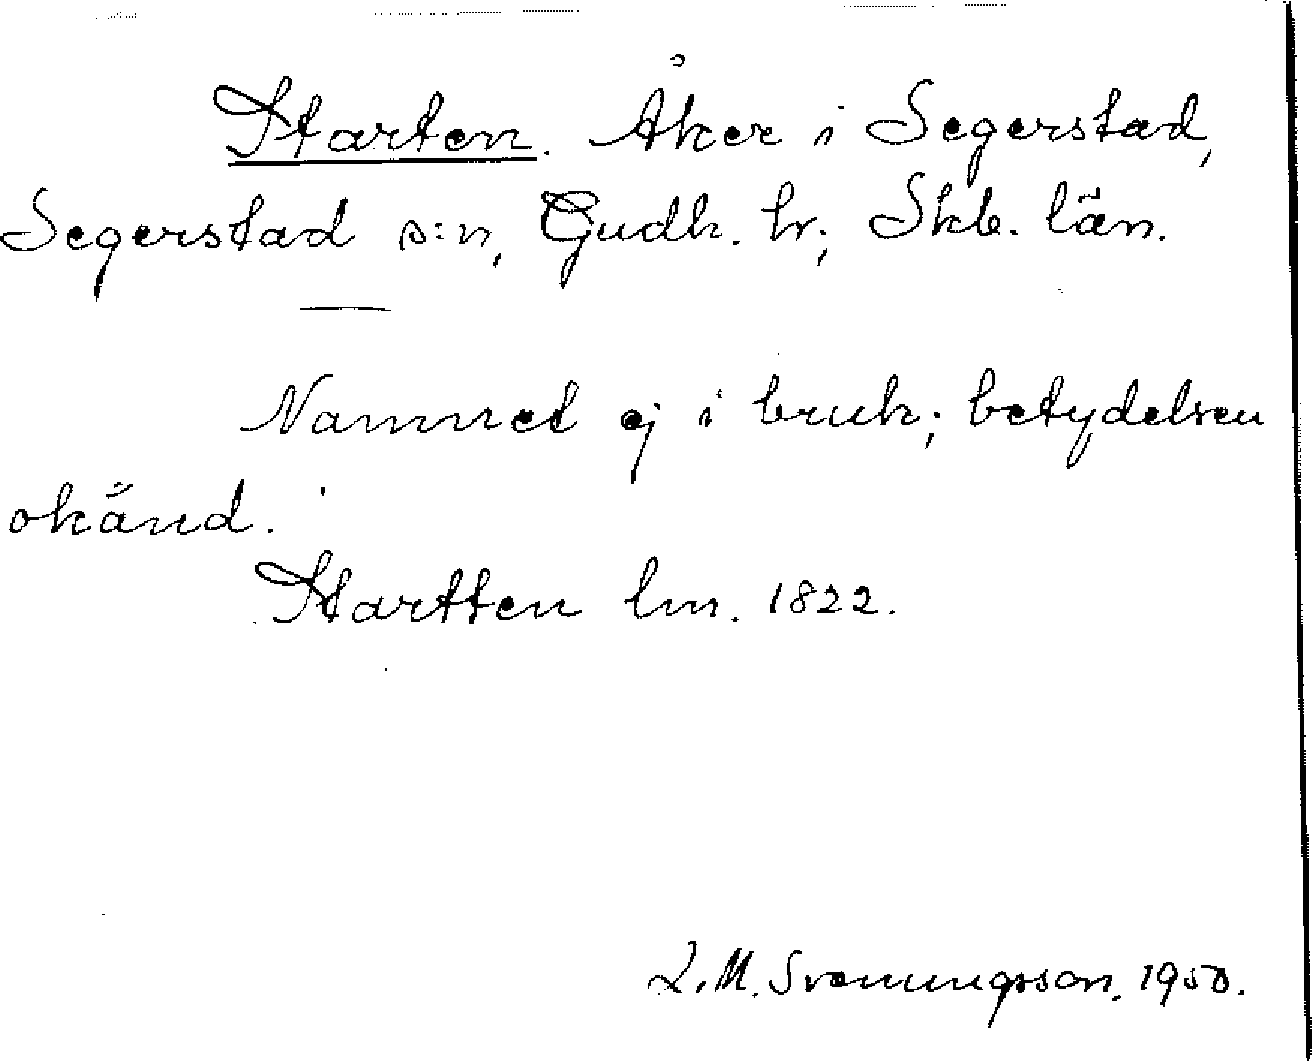 Starten. Åker i Segerstad,
Segerstad s:n, Gudh. hr, Skb. län.
Namnet ej i bruk; betydelsen
okänd.
Startten lm. 1822.
L.M. Svenungsson. 1950.